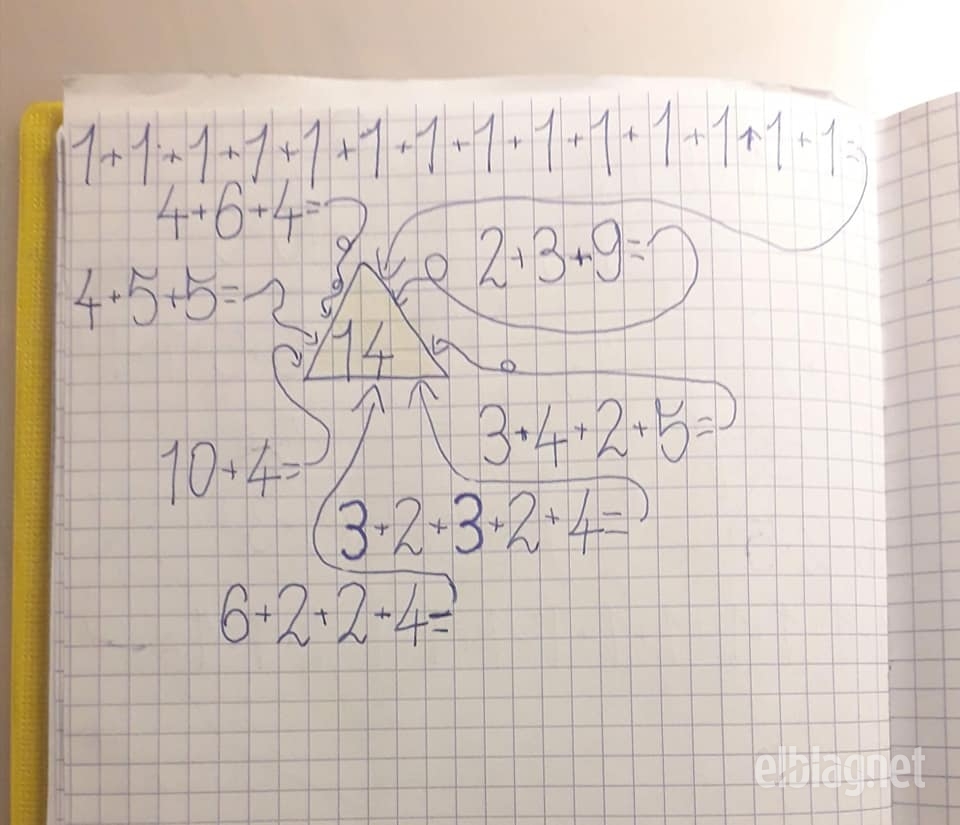 1+1+1+1+1+1+1+1+1+1+1+1+1+1=
4+6+4=
2+3+9=
4+5+5=
14
3+4+2+5=
10+4=
3+2+3+2+4=
6+2+2+4=
elblagnet